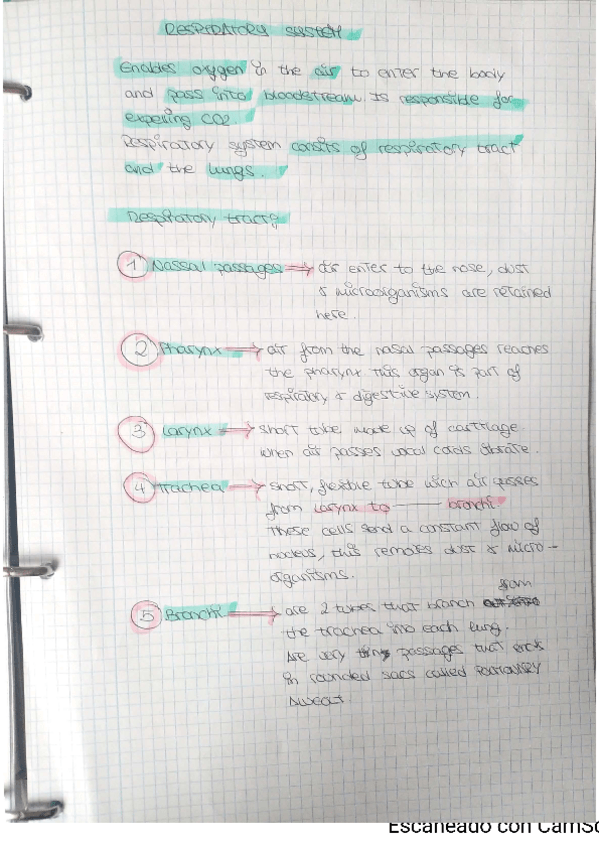 RESPIRATORY SYSTEM
Enables oxygen in the air to enter the body
and pass into bloodstream. Is responsible for
expelling CO2
Respiratory system consits of respiratory tract
and the lungs.
Respiratory tract:
1 Nassal passages → air enter to the nose, dust
& microorganisms are retained
here.
2 Pharynx → air from the nasal passages reaches
the pharynx this organ is part of
respiratory & digestive system.
3 Larynx → short tube made up of cartilage
when air passes vocal cords vibrate.
4 Trachea → short, flexible tube wich air passes
from larynx to bronchi.
These cells send a constant flow of
this removes dust & micro-
organisms.
from
5 Bronchi → are 2 tubes that branch
the trachea into each lung.
Are very passages that
in rounded sacs called
Escaneado con CamSc